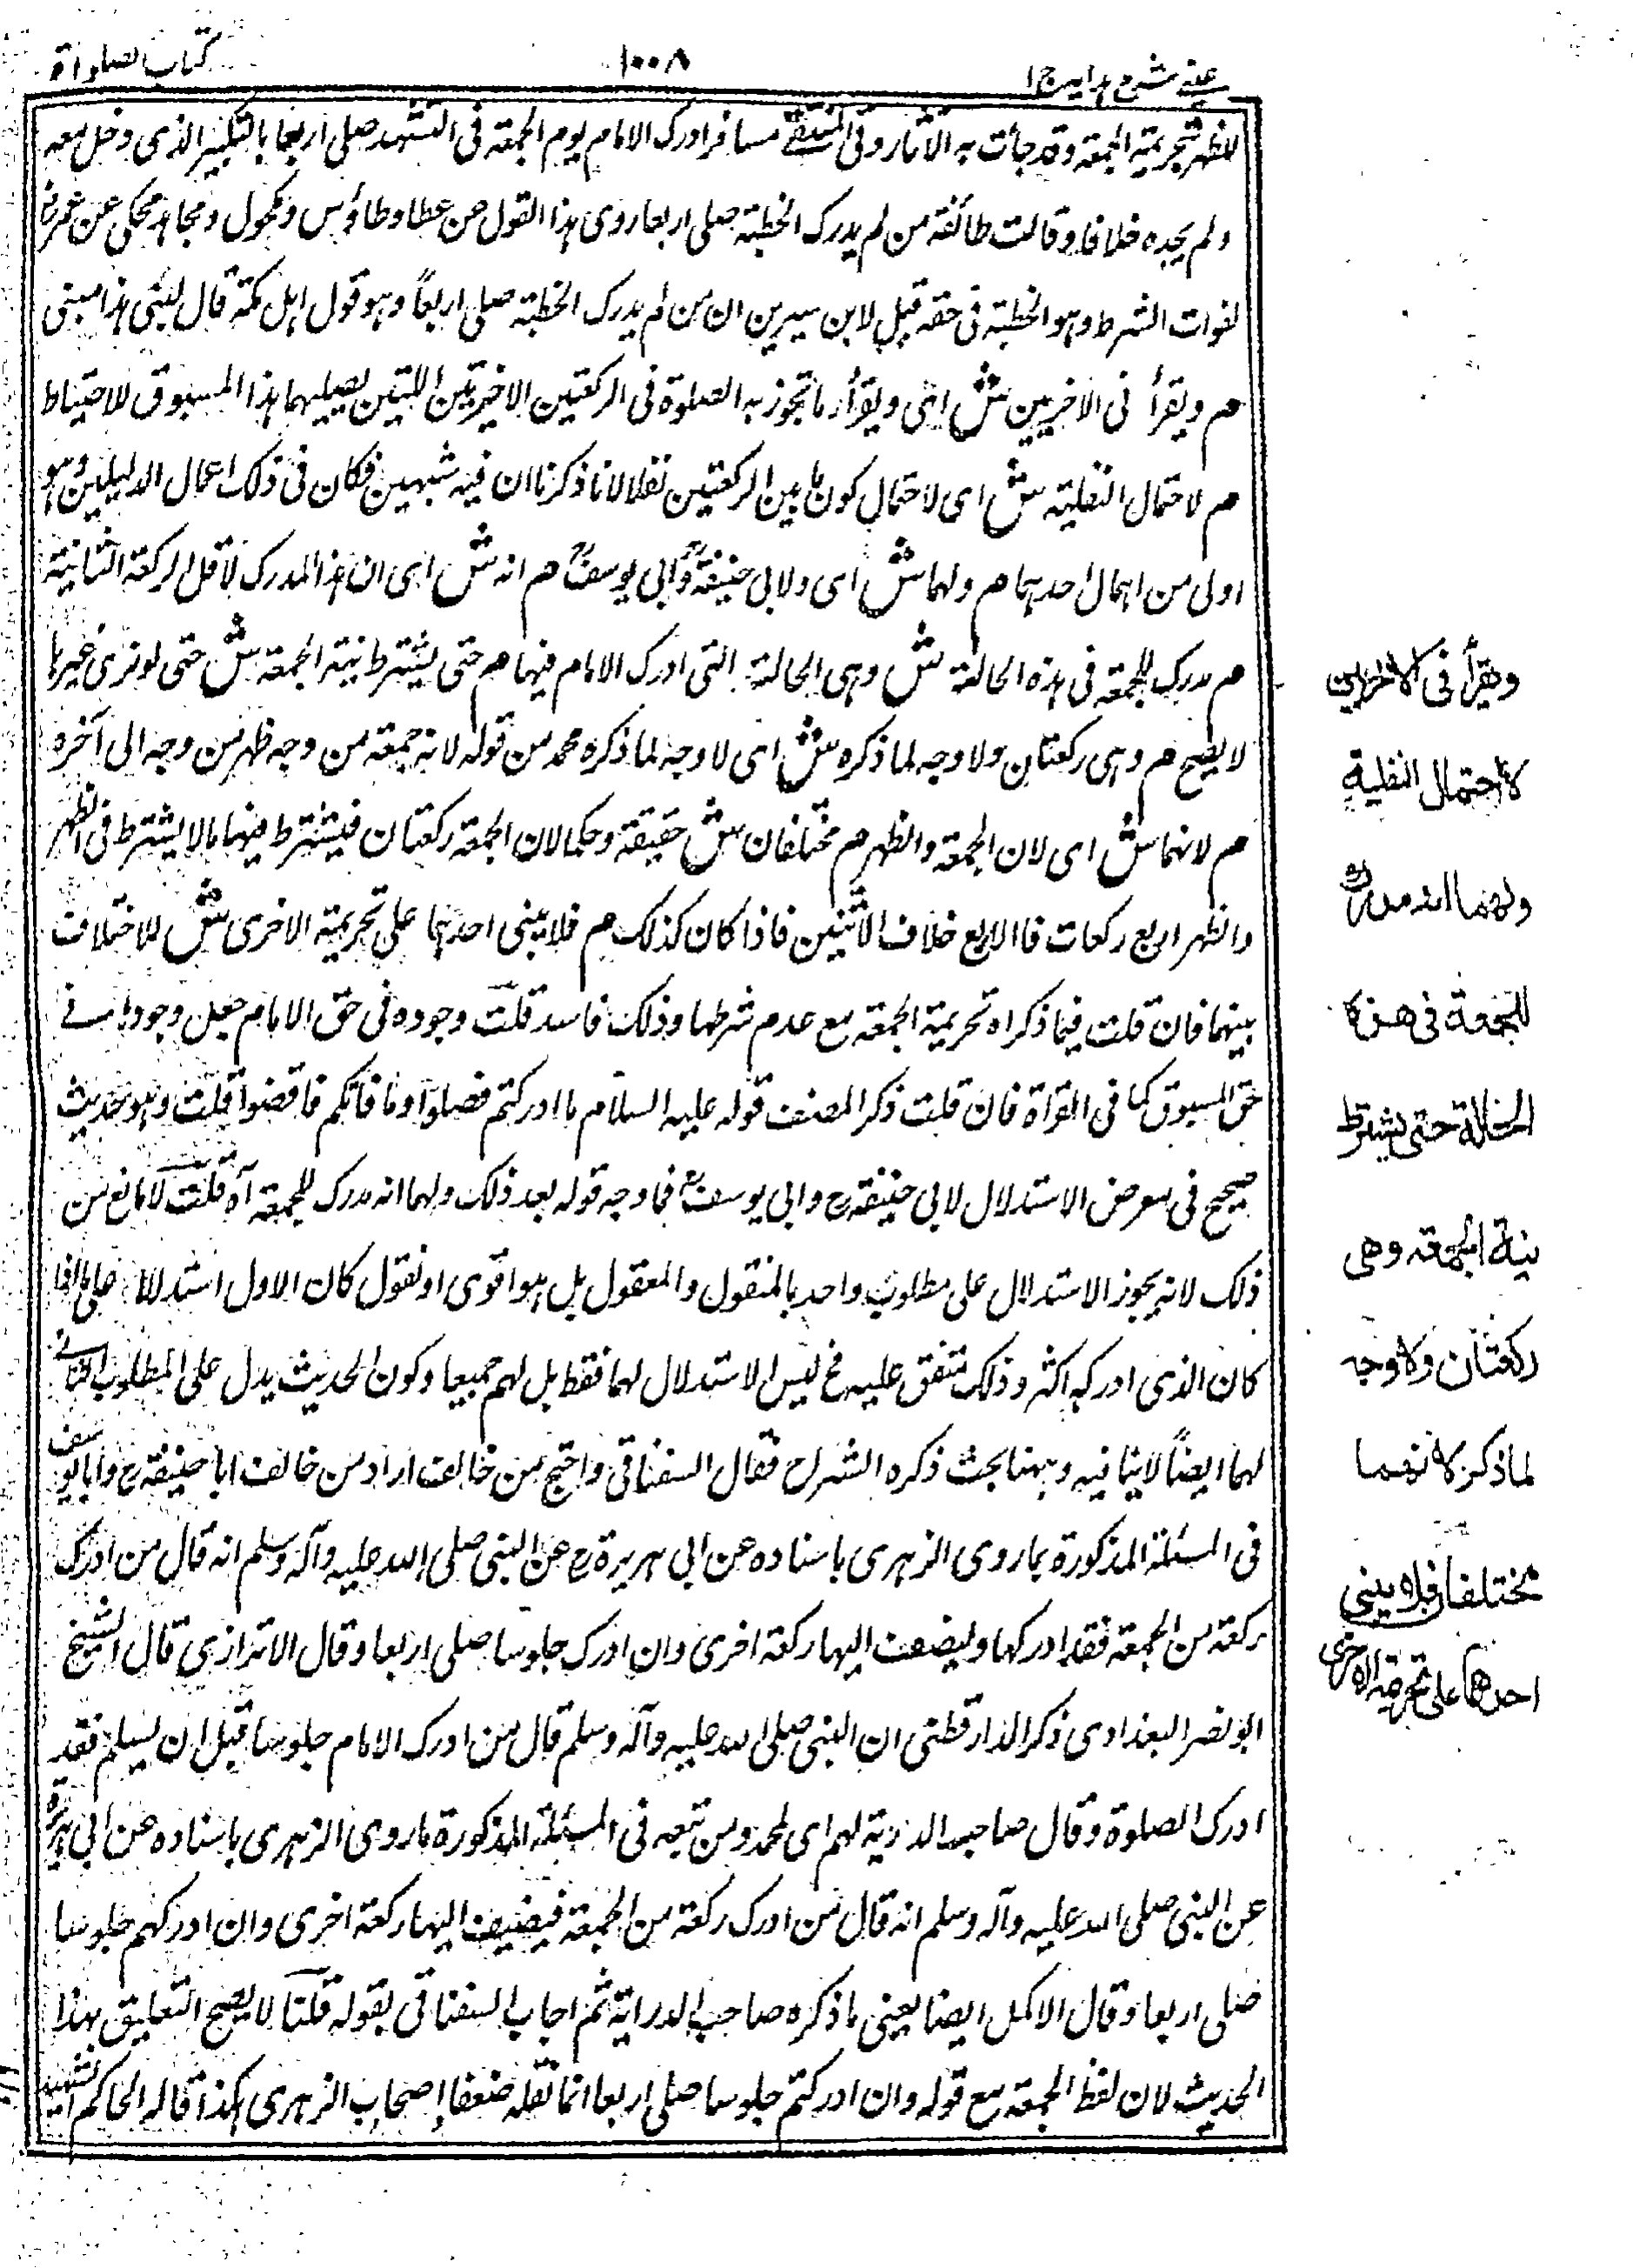 عينى شرح هدايه ج ١
١٠٠٨
كتاب الصلواة
للظهر تحريمة الجمعة وقد جأت به الآثار وفى المنتقے مسافر ادرك الامام يوم الجمعة فى التشهد صلى اربعا بالتكبير الذى دخل معه
ولم يجده خلافا وقالت طائفة من لم يدرك الخطبة صلى اربعا روى هذا القول عن عطا وطاؤس ومكحول ومجاهد محكى عن عمر
لفوات الشرط وهو الخطبة فى حقه قيل لابن سيرين ان من لم يدرك الخطبة صلى اربعاً وهو قول اهل مكة قال ليئ هذا مبنى
م ويقرأ فى الاخريين ش اى ويقرأ ما تجوز به الصلوة فى الركعتين الاخيرتين اللتين يصليهما هذا المسبوق للاحتياط
م لاحتمال النفلية ش اى لاحتمال كون هاتين الركعتين نفلا لانا ذكرنا ان فيه شبهين فكان فى ذلك اعمال الدليلين وهو
اولى من اهمال احدهما م ولهما ش اى ولابى حنيفة وابى يوسف م انه ش اى ان هذا المدرك لاقل الركعة الثانية
م مدرك للجمعة فى هذه الحالة ش وهى الحالة التى ادرك الامام فيها م حتى يشترط نية الجمعة ش حتى لو نوى غيرها
لا يصح م وهى ركعتان ولا وجه لما ذكره ش اى لا وجه لما ذكره محمد من قوله لانه جمعة من وجه ظهر من وجه الى آخره
م لانهما ش اى لان الجمعة والظهر م مختلفان ش حقيقة وحكما لان الجمعة ركعتان فيشترط فيها مالا يشترط فى الظهر
والظهر اربع ركعات فالاربع خلاف الاثنين فاذا كان كذلك م فلا يبنى احدهما على تحريمة الاخرى ش للاختلاف
بينهما فان قلت فيما ذكراه تحريمة الجمعة مع عدم شرطها وذلك فاسد قلت وجوده فى حق الامام جعل وجودها فے
حق المسبوق كما فى القرأة فان قلت ذكر المصنف قوله عليه السلام ما ادركتم فصلوا وما فاتكم فاقضوا قلت وهو حديث
صحيح فى معرض الاستدلال لابى حنيفة رح وابى يوسف رح فما وجه قوله بعد ذلك ولهما انه مدرك للجمعة آه قلت لا مانع من
ذلك لانه يجوز الاستدلال على مطلوب واحد بالمنقول والمعقول بل هو اقوى او نقول كان الاول استدلالا على ما اذا
كان الذى ادركه اكثر وذلك متفق عليه فح ليس الاستدلال لهما فقط بل لهم جميعا وكون الحديث يدل على المطلوب الثانے
لهما ايضاً لا ينافيه وههنا بحث ذكره الشراح فقال السغناقى واحتج من خالف اراد من خالف ابا حنيفة رح وابا يوسف
فى المسئلة المذكورة بما روى الزهرى باسناده عن ابى هريرة رح عن النبى صلى الله عليه وآله وسلم انه قال من ادرك
ركعة من الجمعة فقد ادركها وليضف اليها ركعة اخرى وان ادرك جلوسا صلى اربعا وقال الاترازى قال الشيخ
ابو نصر البغدادى ذكر الدارقطنى ان النبى صلى الله عليه وآله وسلم قال من ادرك الامام جلوسا قبل ان يسلم فقد
ادرك الصلوة وقال صاحب الدرية لهم اى لمحمد ومن تبعه فى المسئلة المذكورة ما روى الزهرى باسناده عن ابى هريرة
عن النبى صلى الله عليه وآله وسلم انه قال من ادرك ركعة من الجمعة فيضيف اليها ركعة اخرى وان ادركهم جلوسا
صلى اربعا وقال الاكمل ايضا يعنى ما ذكره صاحب الدراية ثم اجاب السغناقى بقوله قلنا لا يصح التعليق بهذا
الحديث لان لفظ الجمعة مع قوله وان ادركتم جلوسا صلى اربعا انما نقله ضعفا اصحاب الزهرى هكذا قاله الحاكم الشهيد
ويقرأ فى الاخريين
لاحتمال النفلية
ولهما انه مدرك
للجمعة فى هذه
الحالة حتى يشترط
نية الجمعة وهى
ركعتان ولا وجه
لما ذكره لانهما
مختلفان فلا يبنى
احدهما على تحريمة الاخرى